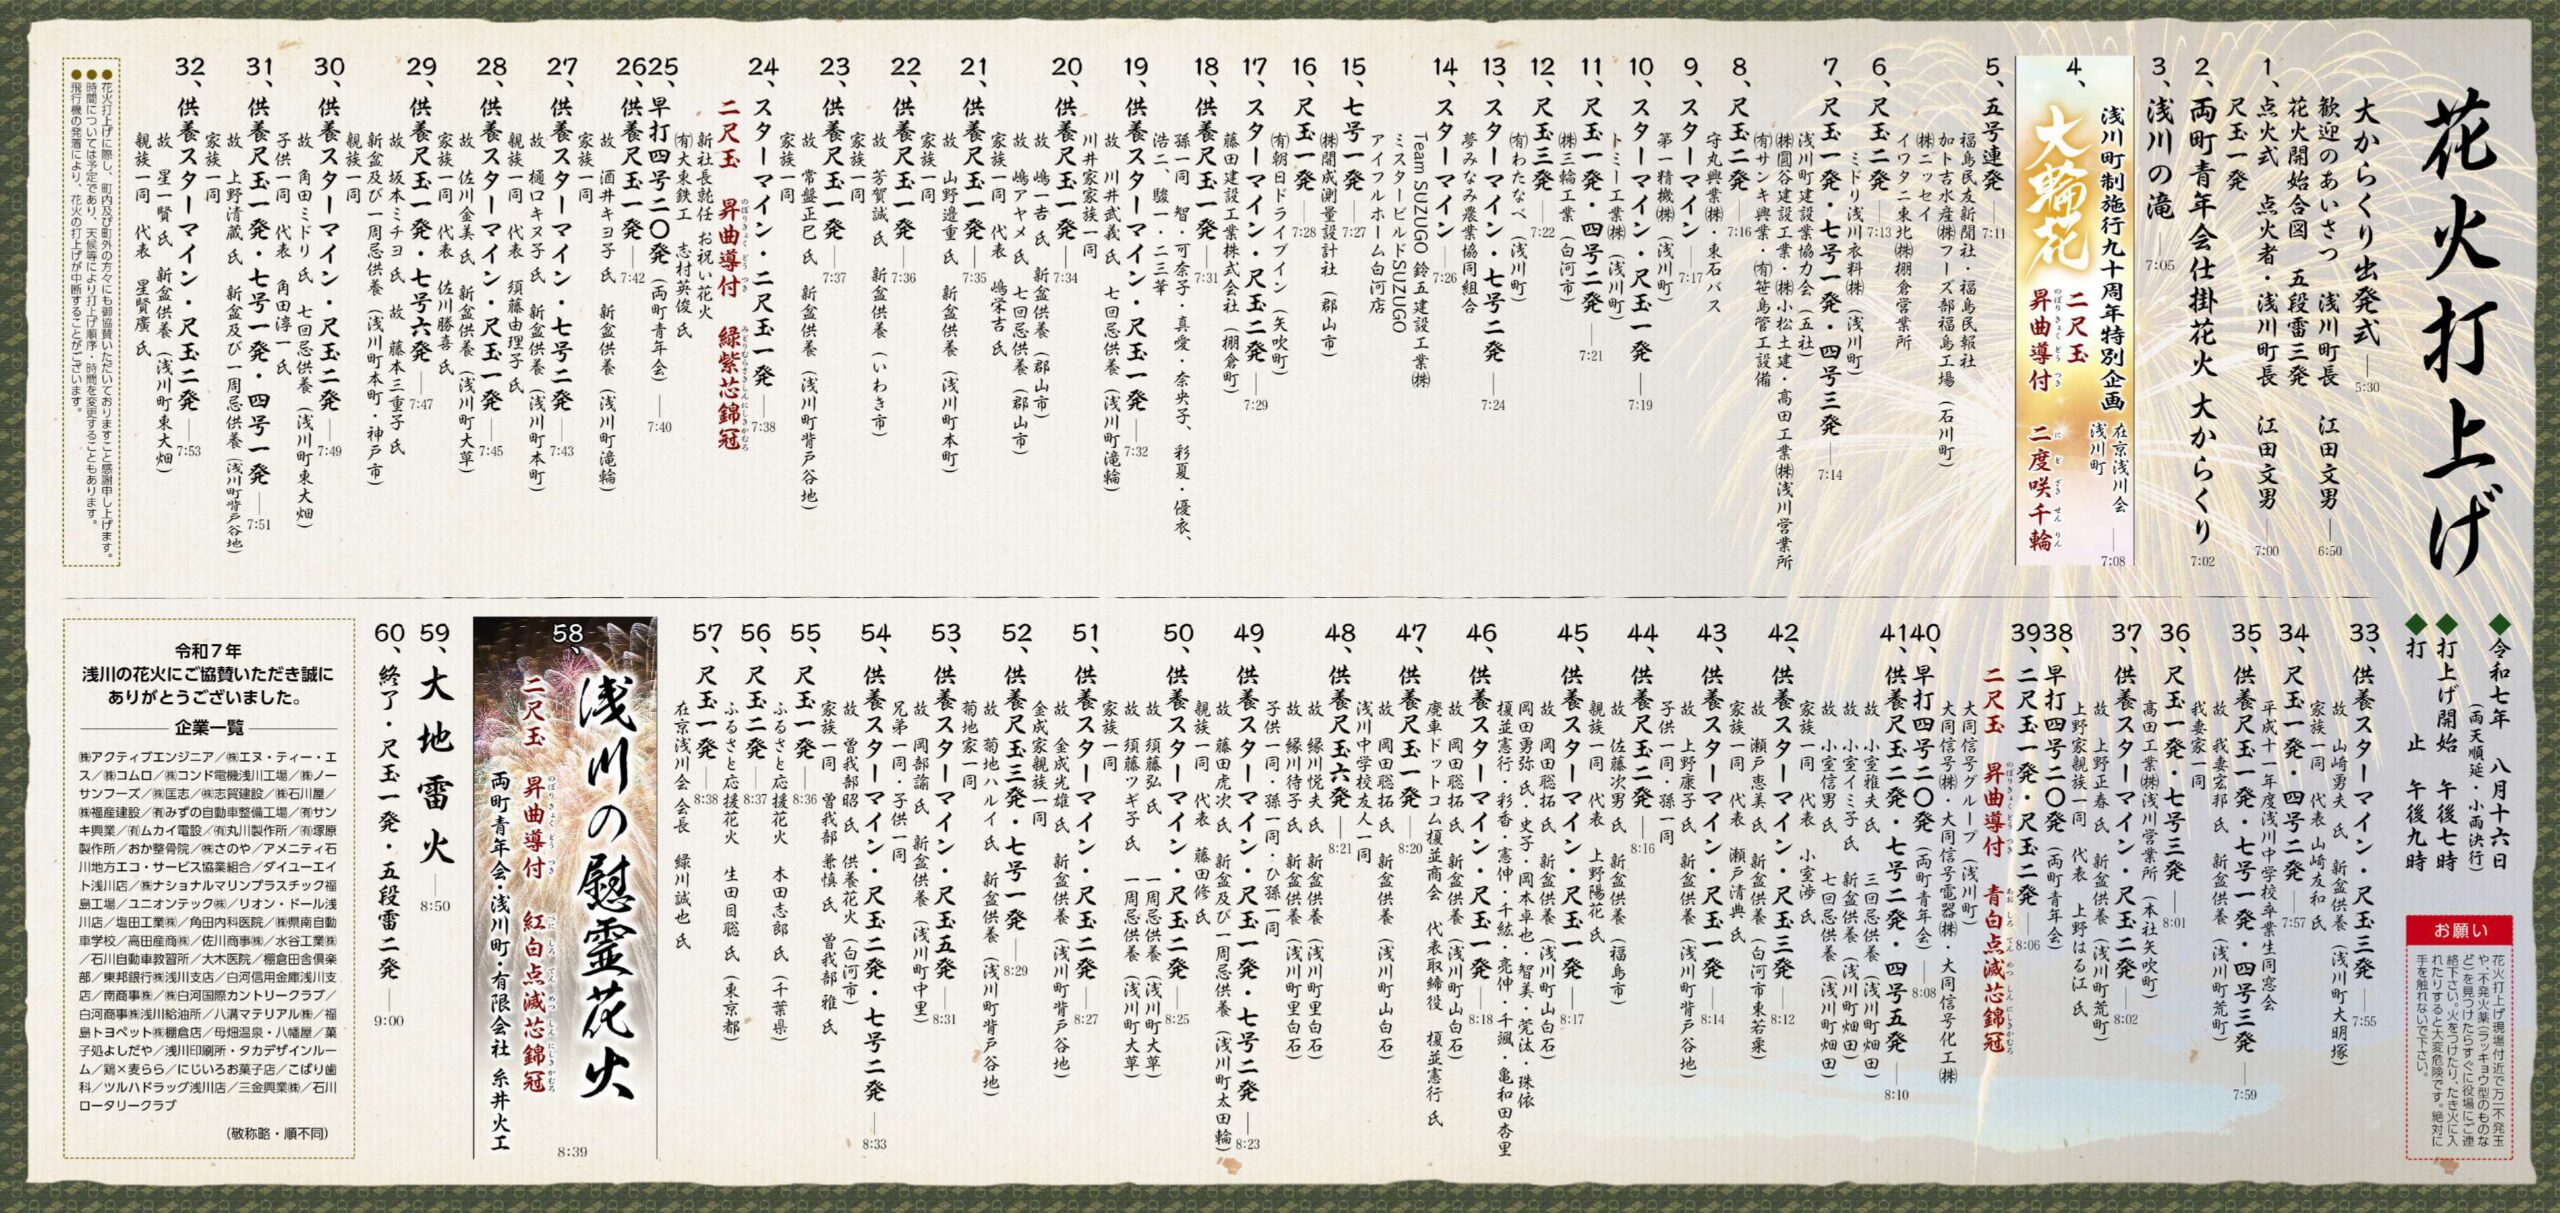 花火打上げ
◆令和七年 八月十六日
(雨天順延・小雨決行)
◆打上げ開始 午後七時
◆打 止 午後九時
お願い
花火打上げ現場付近で万一不発玉
や、不発火薬(ラッキョウ型のものな
ど)を見つけたらすぐに役場にご連
絡下さい。火をつけたり、たき火に入
れたりすると大変危険です。絶対に
手を触れないで下さい。
大からくり出発式―5:30
歓迎のあいさつ 浅川町長 江田文男―6:50
花火開始合図 五段雷三発
1、点火式 点火者・浅川町長 江田文男―7:00
尺玉一発
2、両町青年会仕掛花火 大からくり 7:02
3、浅川の滝―7:05
4、浅川町制施行九十周年特別企画 在京浅川会 浅川町―7:08
大輪花
二尺玉
昇曲導付 二度咲千輪
のぼりきょくどうつき にどざきせんりん
5、五号連発―7:11
福島民友新聞社・福島民報社
加ト吉水産㈱フーズ部福島工場(石川町)
㈱ニッセイ
イワタニ東北㈱棚倉営業所
6、尺玉二発―7:13
ミドリ浅川衣料㈱(浅川町)
7、尺玉一発・七号一発・四号三発―7:14
浅川町建設業協力会(五社)
㈱圓谷建設工業・㈱小松土建・高田工業㈱浅川営業所
㈲サンキ興業・㈲笹島管工設備
8、尺玉二発―7:16
守丸興業㈱・東石バス
9、スターマイン―7:17
第一精機㈱(浅川町)
10、スターマイン・尺玉一発―7:19
トミー工業㈱(浅川町)
11、尺玉一発・四号二発―7:21
㈱三輪工業(白河市)
12、尺玉三発―7:22
㈲わたなべ(浅川町)
13、スターマイン・七号二発―7:24
夢みなみ農業協同組合
14、スターマイン―7:26
Team SUZUGO 鈴五建設工業㈱
ミスタービルドSUZUGO
アイフルホーム白河店
15、七号一発―7:27
㈱開成測量設計社(郡山市)
16、尺玉一発―7:28
㈲朝日ドライブイン(矢吹町)
17、スターマイン・尺玉二発―7:29
藤田建設工業株式会社(棚倉町)
18、供養尺玉一発―7:31
孫一同 智・可奈子・真愛・奈央子、彩夏・優衣、
浩二、駿一・二三華
19、供養スターマイン・尺玉一発―7:32
故 川井武義氏 七回忌供養(浅川町滝輪)
川井家家族一同
20、供養尺玉一発―7:34
故 嶋一吉氏 新盆供養(郡山市)
故 嶋アヤメ氏 七回忌供養(郡山市)
家族一同 代表 嶋栄吉氏
21、供養尺玉一発―7:35
故 山野邉重氏 新盆供養(浅川町本町)
家族一同
22、供養尺玉一発―7:36
故 芳賀誠氏 新盆供養(いわき市)
家族一同
23、供養尺玉一発―7:37
故 常盤正巳氏 新盆供養(浅川町背戸谷地)
家族一同
24、スターマイン・二尺玉一発―7:38
二尺玉 昇曲導付 緑紫芯錦冠
のぼりきょくどうつき みどりむらさきしんにしきかむろ
新社長就任 お祝い花火
㈲大東鉄工 志村英俊氏
25、早打四号二〇発(両町青年会)―7:40
26、供養尺玉一発―7:42
故 酒井キヨ子氏 新盆供養(浅川町滝輪)
家族一同
27、供養スターマイン・七号二発―7:43
故 樋口キヌ子氏 新盆供養(浅川町本町)
親族一同 代表 須藤由理子氏
28、供養スターマイン・尺玉一発―7:45
故 佐川金美氏 新盆供養(浅川町大草)
家族一同 代表 佐川勝喜氏
29、供養尺玉一発・七号六発―7:47
故 坂本ミチヨ氏 故 藤本三重子氏
新盆及び一周忌供養(浅川町本町・神戸市)
親族一同
30、供養スターマイン・尺玉二発―7:49
故 角田ミドリ氏 七回忌供養(浅川町東大畑)
子供一同 代表 角田淳一氏
31、供養尺玉一発・七号一発・四号一発―7:51
故 上野清蔵氏 新盆及び一周忌供養(浅川町背戸谷地)
家族一同
32、供養スターマイン・尺玉二発―7:53
故 星一賢氏 新盆供養(浅川町東大畑)
親族一同 代表 星賢廣氏
●花火打上げに際し、町内及び町外の方々にも御協賛いただいておりますこと感謝申し上げます。
●時間については予定であり、天候等により打上げ順序・時間を変更することもあります。
●飛行機の発着により、花火の打上げが中断することがございます。
33、供養スターマイン・尺玉三発―7:55
故 山崎勇夫氏 新盆供養(浅川町大明塚)
家族一同 代表 山崎友和氏
34、尺玉一発・四号二発―7:57
平成十一年度浅川中学校卒業生同窓会
35、供養尺玉一発・七号一発・四号三発―7:59
故 我妻宏邦氏 新盆供養(浅川町荒町)
我妻家一同
36、尺玉一発・七号三発―8:01
高田工業㈱浅川営業所(本社矢吹町)
37、供養スターマイン・尺玉二発―8:02
故 上野正春氏 新盆供養(浅川町荒町)
上野家親族一同 代表 上野はる江氏
38、早打四号二〇発(両町青年会)
39、二尺玉一発・尺玉二発―8:06
二尺玉 昇曲導付 青白点滅芯錦冠
のぼりきょくどうつき あおしろてんめつしんにしきかむろ
大同信号グループ(浅川町)
大同信号㈱・大同信号電器㈱・大同信号化工㈱
40、早打四号二〇発(両町青年会)―8:08
41、供養尺玉一発・七号二発・四号五発―8:10
故 小室雅夫氏 三回忌供養(浅川町畑田)
故 小室イミ子氏 新盆供養(浅川町畑田)
故 小室信男氏 七回忌供養(浅川町畑田)
家族一同 代表 小室渉氏
42、供養スターマイン・尺玉三発―8:12
故 瀬戸恵美氏 新盆供養(白河市東若栗)
家族一同 代表 瀬戸清典氏
43、供養スターマイン・尺玉一発―8:14
故 上野康子氏 新盆供養(浅川町背戸谷地)
子供一同・孫一同
44、供養尺玉二発―8:16
故 佐藤次男氏 新盆供養(福島市)
親族一同 代表 上野陽花氏
45、供養スターマイン・尺玉二発―8:17
故 岡田聡拓氏 新盆供養(浅川町山白石)
岡田勇弥氏・史子・岡本卓也・智美・莞汰・珠依
榎並憲行・彩香・憲伸・千紘・亮伸・千颯・亀和田杏里
46、供養スターマイン・尺玉一発―8:18
故 岡田聡拓氏 新盆供養(浅川町山白石)
廃車ドットコム榎並商会 代表取締役 榎並憲行氏
47、供養尺玉一発―8:20
故 岡田聡拓氏 新盆供養(浅川町山白石)
浅川中学校友人一同
48、供養尺玉六発―8:21
故 緑川悦夫氏 新盆供養(浅川町里白石)
故 緑川待子氏 新盆供養(浅川町里白石)
子供一同・孫一同・ひ孫一同
49、供養スターマイン・尺玉一発・七号二発―8:23
故 藤田虎次氏 新盆及び一周忌供養(浅川町太田輪)
親族一同 代表 藤田修氏
50、供養スターマイン・尺玉二発―8:25
故 須藤弘氏 一周忌供養(浅川町大草)
故 須藤ツギ子氏 一周忌供養(浅川町大草)
家族一同
51、供養スターマイン・尺玉二発―8:27
故 金成光雄氏 新盆供養(浅川町背戸谷地)
金成家親族一同
52、供養尺玉三発・七号一発―8:29
故 菊地ハルイ氏 新盆供養(浅川町背戸谷地)
菊地家一同
53、供養スターマイン・尺玉五発―8:31
故 岡部諭氏 新盆供養(浅川町中里)
兄弟一同・子供一同
54、供養スターマイン・尺玉二発・七号二発―8:33
故 曽我部昭氏 供養花火(白河市)
家族一同 曽我部兼慎氏 曽我部雅氏
55、尺玉一発―8:36
ふるさと応援花火 木田志郎氏(千葉県)
56、尺玉二発―8:37
ふるさと応援花火 生田目聡氏(東京都)
57、尺玉一発―8:38
在京浅川会 会長 緑川誠也氏
58、浅川の慰霊花火
二尺玉 昇曲導付 紅白点滅芯錦冠
のぼりきょくどうつき べにしろてんめつしんにしきかむろ
両町青年会・浅川町・有限会社 糸井火工
8:39
59、大地雷火―8:50
60、終了・尺玉一発・五段雷二発―9:00
令和7年
浅川の花火にご協賛いただき誠に
ありがとうございました。
企業一覧
㈱アクティブエンジニア/㈱エヌ・ティー・エ
ス/㈱コムロ/㈱コンド電機浅川工場/㈱ノー
サンフーズ/㈱匡志/㈱志賀建設/㈱石川屋/
㈱福産建設/㈲みずの自動車整備工場/㈲サン
キ興業/㈲ムカイ電設/㈲丸川製作所/㈲塚原
製作所/おか整骨院/㈱さのや/アメニティ石
川地方エコ・サービス協業組合/ダイユーエイ
ト浅川店/㈱ナショナルマリンプラスチック福
島工場/ユニオンテック㈱/リオン・ドール浅
川店/塩田工業㈱/角田内科医院/㈱県南自動
車学校/高田産商㈱/佐川商事㈱/水谷工業㈱
/石川自動車教習所/大木医院/棚倉田舎倶楽
部/東邦銀行㈱浅川支店/白河信用金庫浅川支
店/南商事㈱/㈱白河国際カントリークラブ/
白河商事㈱浅川給油所/八溝マテリアル㈱/福
島トヨペット㈱棚倉店/母畑温泉・八幡屋/菓
子処よしだや/浅川印刷所・タカデザインルー
ム/鶏×麦らら/にじいろお菓子店/こばり歯
科/ツルハドラッグ浅川店/三金興業㈱/石川
ロータリークラブ
(敬称略・順不同)